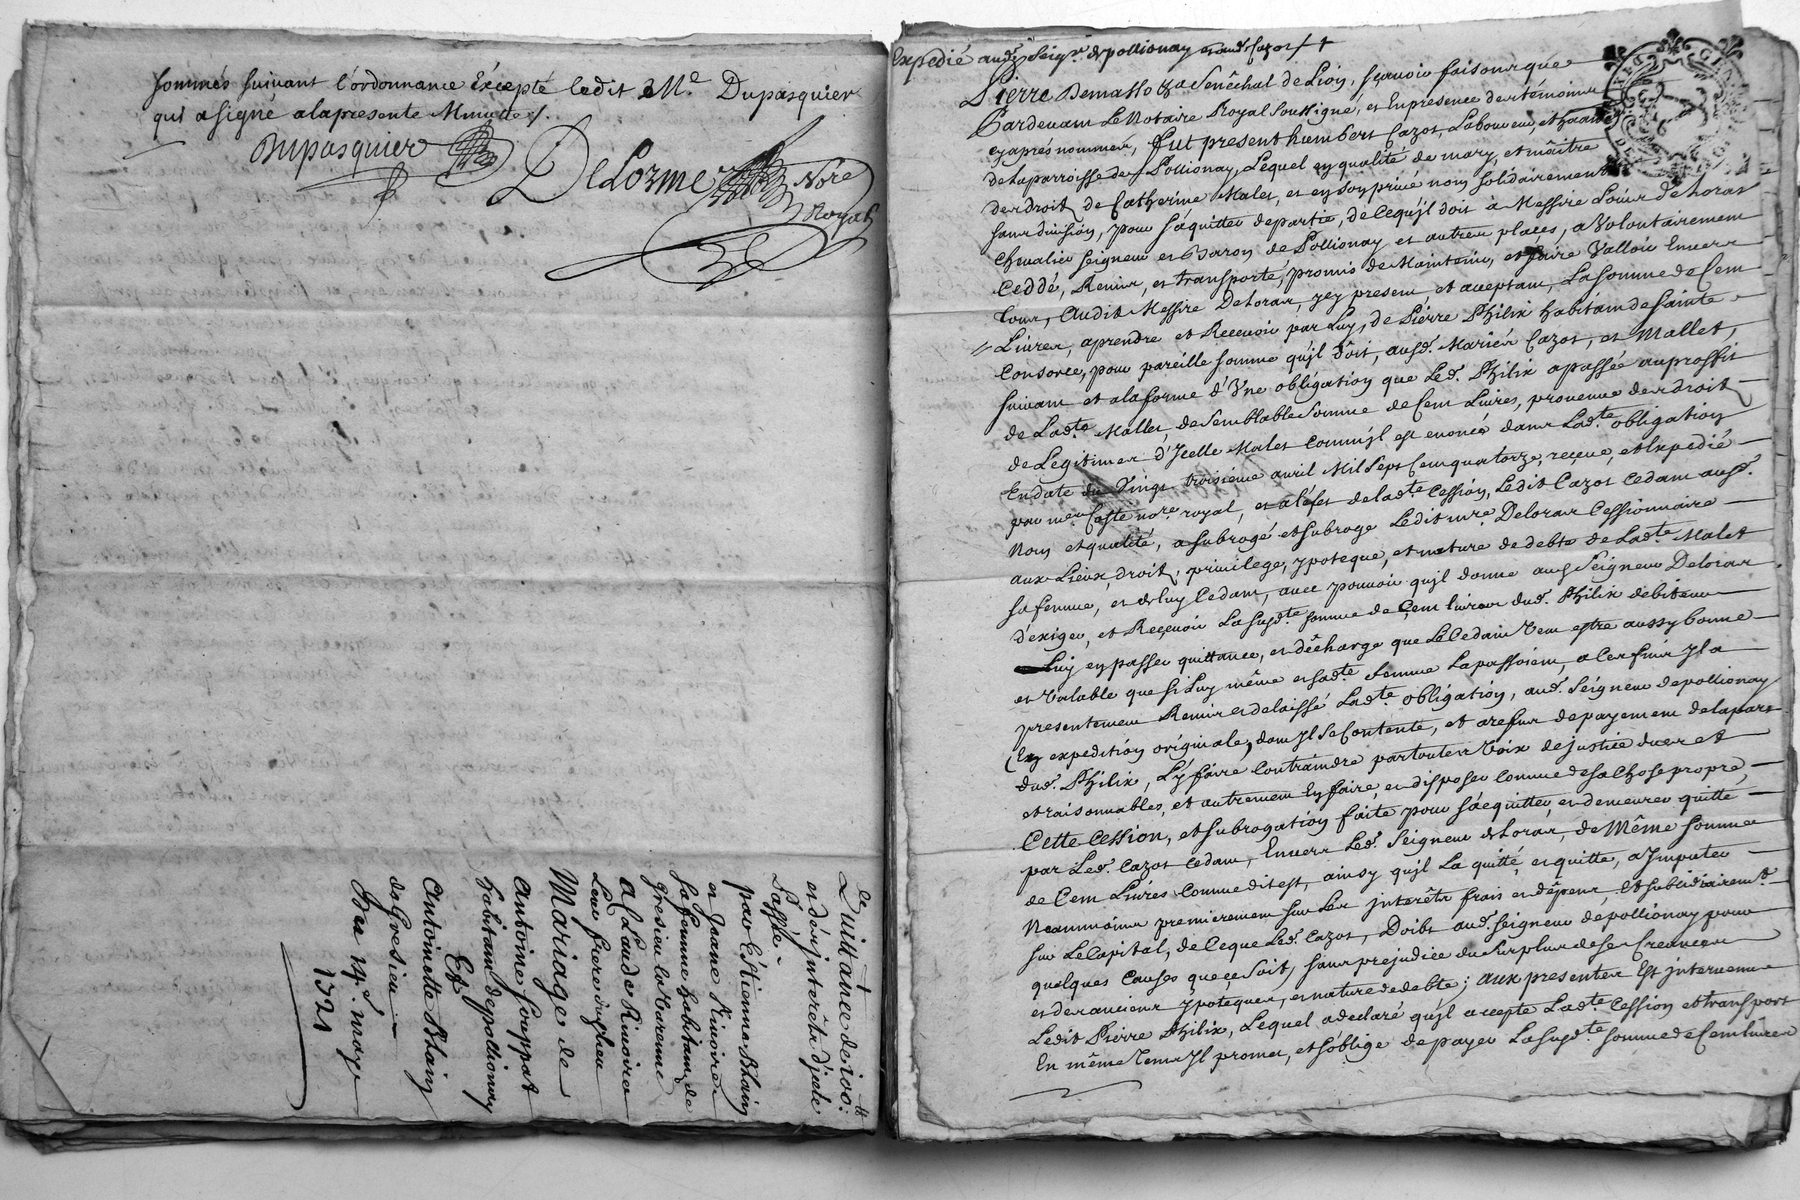 sommés suivant l'ordonnance Excepté ledit Me. Dupasquier
qui a signé a la presente Minutte /.
Dupasquier
DeLorme Nore
Royal
de
Quittance de 100:tt
et des interêts d'jcelle
Passée
par Estienne Blain
et Jeane Rivoire
sa femme habitans de
Gresieu la Varenne
a Claude Rivoire
Leur frere du lieu
Mariage de
Antoine Souppat
habitant de pollionay
Et
Antoinette Blain
de Gresieu
Du 14e. may
1721
Expedié aud. Seigr. de pollionay et aud. Cazot /. +
Pierre Demasso Sénéchal de Lion, sçavoir faisons que
Pardevant Le Notaire Royal Soussigné, et En presence des témoins
cy aprés nommés, fut present humbert Cazot, Laboureur, et habitant
de la parroisse de Pollionay, Lequel en qualité de mary, et maître
des droits de Catherine Malet, et en son privé nom solidairement
sans division, pour s'aquitter de partie, de ce qu'jl doit à Messire Louis de Loras
Chevalier Seigneur et Baron de Pollionay, et autres places, a Volontairement
Ceddé, Remis, et transporté, promis de Maintenir, et faire Valloir Envers
tous, Audit Messire De Loras, jcy present et acceptant, La Somme de Cent
Livres, aprendre et Recevoir par Luy, de Pierre Philix habitant de Sainte
Consorce, pour pareille Somme qu'jl doit, ausd. Mariés Cazot, et Mallet,
suivant et a la forme d'Vne obligation que Led. Philix a passée au proffit
de Ladte. Mallet, de semblable Somme de Cent Livres, provenue des droits
de Legitimes d'Jcelle Malet Comm'jl est enoncé dans Ladte. obligation
En date du Vingt troisieme avril Mil Sept Cent quatorze, reçeue, et Expedié
par me. Coste nore. royal, et a l'éfet de ladte. Cession, Ledit Cazot Cedant ausd.
Nom et qualité, a subrogé et subroge Ledit mre. De loras Cessionnaire
aux Lieux, droit, privilege, ypoteque, et nature de debte de Ladte. Malet
sa femme, et de luy Cedant, avec pouvoir qu'jl donne aud. Seigneur De loras
d'exiger, et Reçevoir La susdte. somme de Cent Livres dud. Philix debiteur
Luy en passer quittance, et décharge que Le Cedant Veut estre aussy bonne
et Valable que si Luy même et sadte. femme La passoient, a Ces fins Jl a
presentement Remis et delaissé Ladte. obligation, aud. Seigneur de pollionay
En expedition originale, dont Jl se Contente, et a refus de payement de la part
dud. Philix, L'y faire Contraindre par toutes Voix de justice dues et
et raisonnables, et autrement En faire, et disposer Comme de sa Chose propre,
Cette Cession, et subrogation faite pour s'acquitter, et demeurer quitte
par Led. Cazot Cedant, Envers Led. Seigneur de Loras, de Même somme
de Cent Livres comme dit est, ainsy qu'jl La quitté, et quitte, a Jmputer
Neammoins premierement sur Les jnterêts frais et dépens, Et subsidiairemt.
sur Le Capital, de Ce que Led. Cazot, Doibt aud. Seigneur de pollionay pour
quelques Causes que ce soit, sans prejudice du surplus de ses Creances
et des anciens ypoteques, et nature de debte; aux presentes Est jntervenu
Ledit Pierre Philix, Lequel a declaré qu'jl accepte Ladte. Cession et transport
En même Tems Jl promet, et s'oblige de payer La susdte. somme de Cent Livres